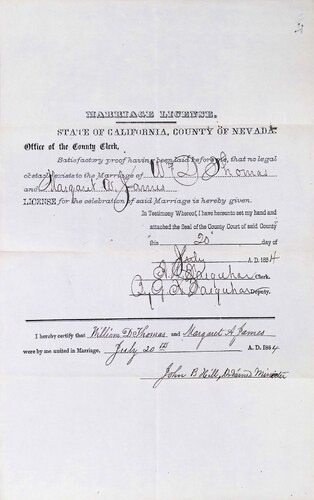 MARRIAGE LICENSE.
STATE OF CALIFORNIA, COUNTY OF NEVADA.
Office of the County Clerk,
Satisfactory proof having been laid before me, that no legal
obstacle exists to the Marriage of Wm D Thomas
and Margaret A. James
LICENSE for the celebration of said Marriage is hereby given.
In Testimony Whereof, I have hereunto set my hand and
attached the Seal of the County Court of said County
this 20" day of
July A. D. 1884
Farquhar Clerk.
Farquhar Deputy.
I hereby certify that William D. Thomas and Margaret A James
were by me united in Marriage, July 20th A. D. 1884
John B Hill, Ordained Minister